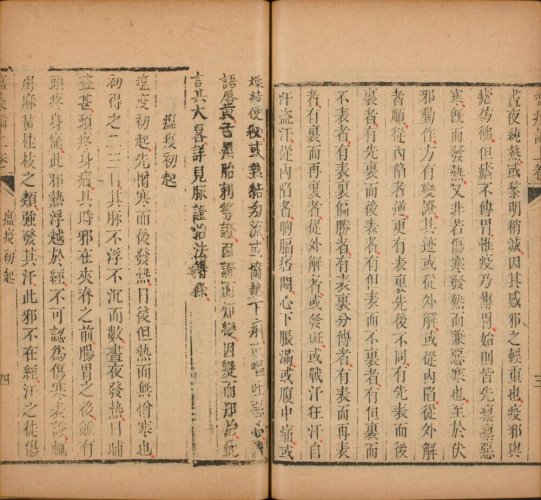 晝夜純熱或黎明稍減因其感邪之輕重也疫邪與
瘧彷彿但瘧不傳胃惟疫乃傳胃始則皆先凜凜惡
寒既而發熱又非若傷寒發熱而兼惡寒也至於伏
邪動作方有變證其迹或從外解或從內陷從外解
者順從內陷者逆更有表裏先後不同有先表而後
裏者有先裏而後表者有但表而不裏者有但裏而
不表者有表裏偏勝者有表裏分傳者有表而再表
者有裏而再裏者從外解者或發斑或戰汗狂汗自
汗盜汗從內陷者胸膈痞悶心下脹滿或腹中痛或
燥結便秘或熱結旁流或協熱下利或嘔吐惡心
語唇黃舌黑胎刺等證因證而知變因變而知治此
言其大畧詳見脉證治法諸條
瘟疫初起
瘟疫初起先憎寒而後發熱日後但熱而無憎寒也
初得之二三日其脉不浮不沉而數晝夜發熱日晡
益甚頭疼身痛其時邪在夾脊之前腸胃之後雖有
頭疼身痛此邪熱浮越於經不可認爲傷寒表證輒
用麻黃桂枝之類強發其汗此邪不在經汗之徒傷
瘟疫初起
四